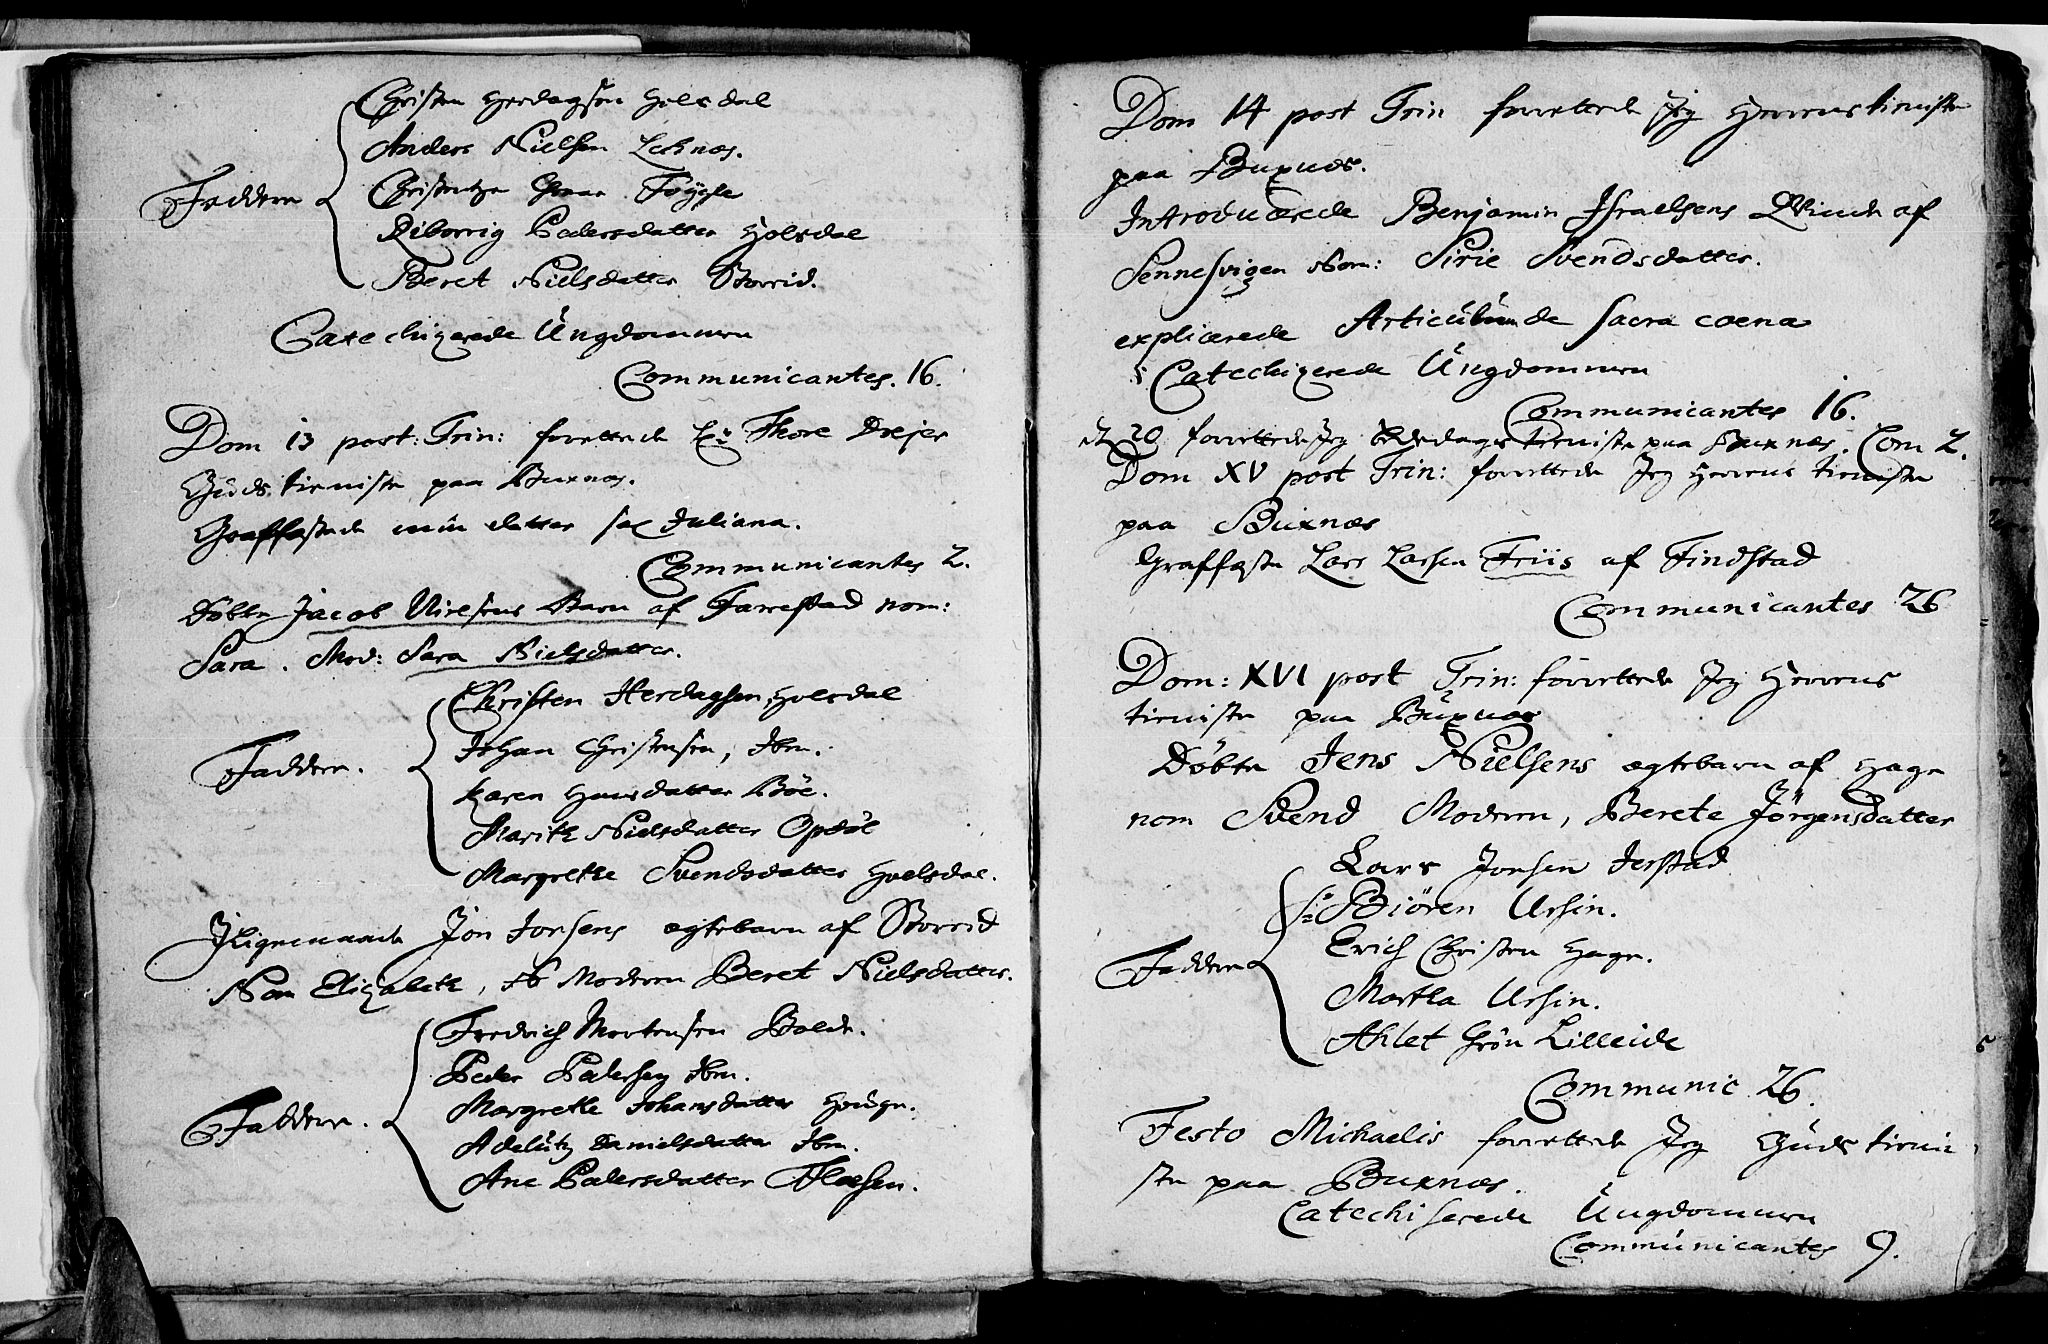 Christen Herdagsøn Holsdal
Anders Nielsen Leknæs.
Faddern
Christentze Tøygle
Zibborrig Pedersdatter Holsdal
Beret Nielsdatter Storrid.
Catechizerede Ungdommen
Communicantes. 16.
Dom 13 post: Trin: forrettede Hr Thore Drejer
Guds tieniste paa Buxnæs.
Graffæstede min datter sal Juliana.
Communicantes 2.
Døbte Jacob Niresens Barn af Farrestad nom:
Sara. Mod: Sara Nielsdatter.
Christen Herdagsen Holsdal
Johan Christensen, Ibm.
Faddern.
Karen Hansdatter Bøe.
Marith Nielsdatter Opdøl
Margrethe Svendsdatter Holsdal.
Jligemaade Jon Jonsens ægtebarn af Storrid
Nom Elizabeth, Moderen Beret Nielsdatter.
Fredrich Mortensen Bolde.
Peder Pedersen Ibm.
Margrethe Johansdatter Hougn.
Faddern.
Adelutz Danielsdatter Ibm.
Ane Pedersdatter Flæsen.
Dom 14 post Trin forrettede Jeg Herrens tieniste
paa Buxnæs.
Introducerede Benjamin Israelsens Qvinde af
Sennesvigen Nom: Sirie Svendsdatter.
explicerede Articulum de sacra coena
Catechizerede Ungdommen
Communicantes 16.
d 20 forrettede Jeg tieniste paa Buxnæs. Com 2.
Dom XV post Trin: forrettede Jeg Herrens tieniste
paa Buxnæs
Graffæste Lars Larsen Friis af Findstad
Communicantes 26
Dom: XVI post Trin: forrettede Jeg Herrens
tieniste paa Buxnæs
Døbte Jens Nielsens ægtebarn af Hagn
nom Svend Moderen, Berete Jørgensdatter
Lars Jonsen Jerstad
Hr Biören Ursin.
Faddern
Erich Christen Hagn.
Martha Ursin.
Ahlet Grön Lilleide
Communic 26.
Festo Michaelis forrettede Jeg Guds tieni
ste paa Buxnæs.
Catechiserede Ungdommen
Communicantes 9.